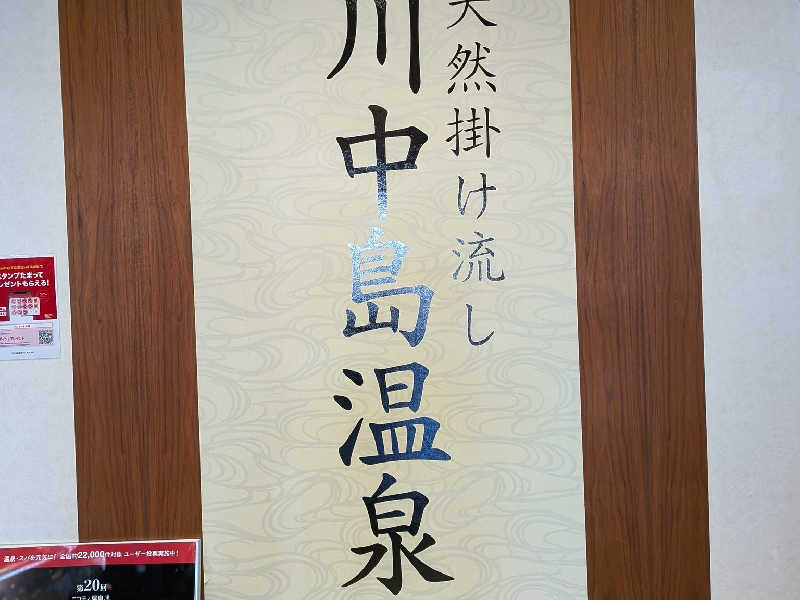 天然掛け流し
川中島温泉
スタンプたまって
プレゼントもらえる!
温泉・スパを元気に! 全国約22,000件対象 ユーザー投票実施中!
第20回